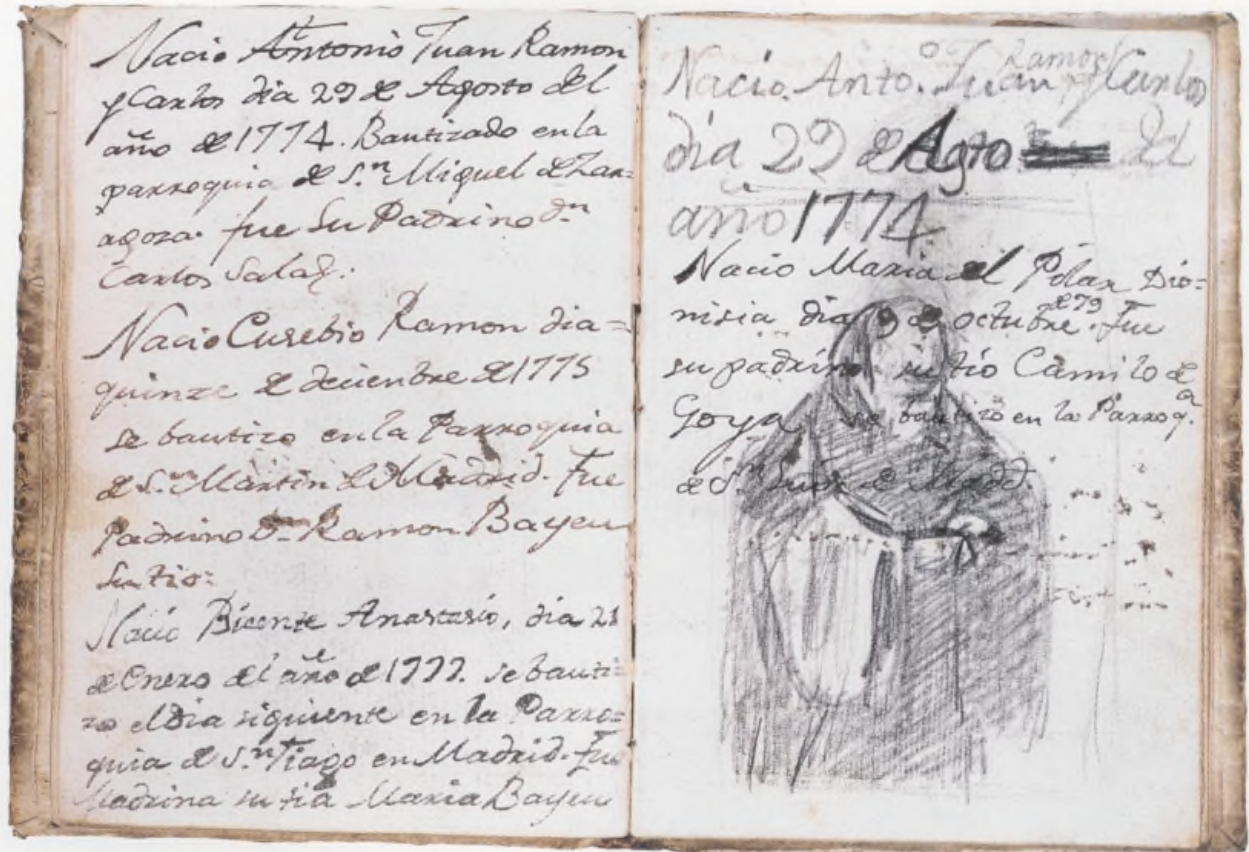 Nacio Antonio Juan Ramon
y Carlos dia 29 de Agosto del
año de 1774. Bautizado en la
parroquia de S.n Miguel de Zar=
agoza. fue Su Padrino d.n
Carlos Salas.
Nacio Eusebio Ramon dia=
quinze de deciembre de 1775
se bautizo en la Parroquia
de S.n Martin de Madrid. Fue
Padrino D.n Ramon Bayeu
Su tio:
Nacio Bicente Anastasio, dia 21
de Enero del año de 1777. se bauti=
zo el Dia siguiente en la Parro=
quia de S.n Tiago en Madrid. Fue
Madrina su tia Maria Bayeu
Nacio. Anto. Juan Ramon y Carlos
dia 29 de Agto del
año 1774
Nacio Maria del Pilar Dio=
nisia dia 9 de octubre de 79. Fue
su padrino su tio Camilo de
Goya se bautizo en la Parroq.a
de S.n de Madd.